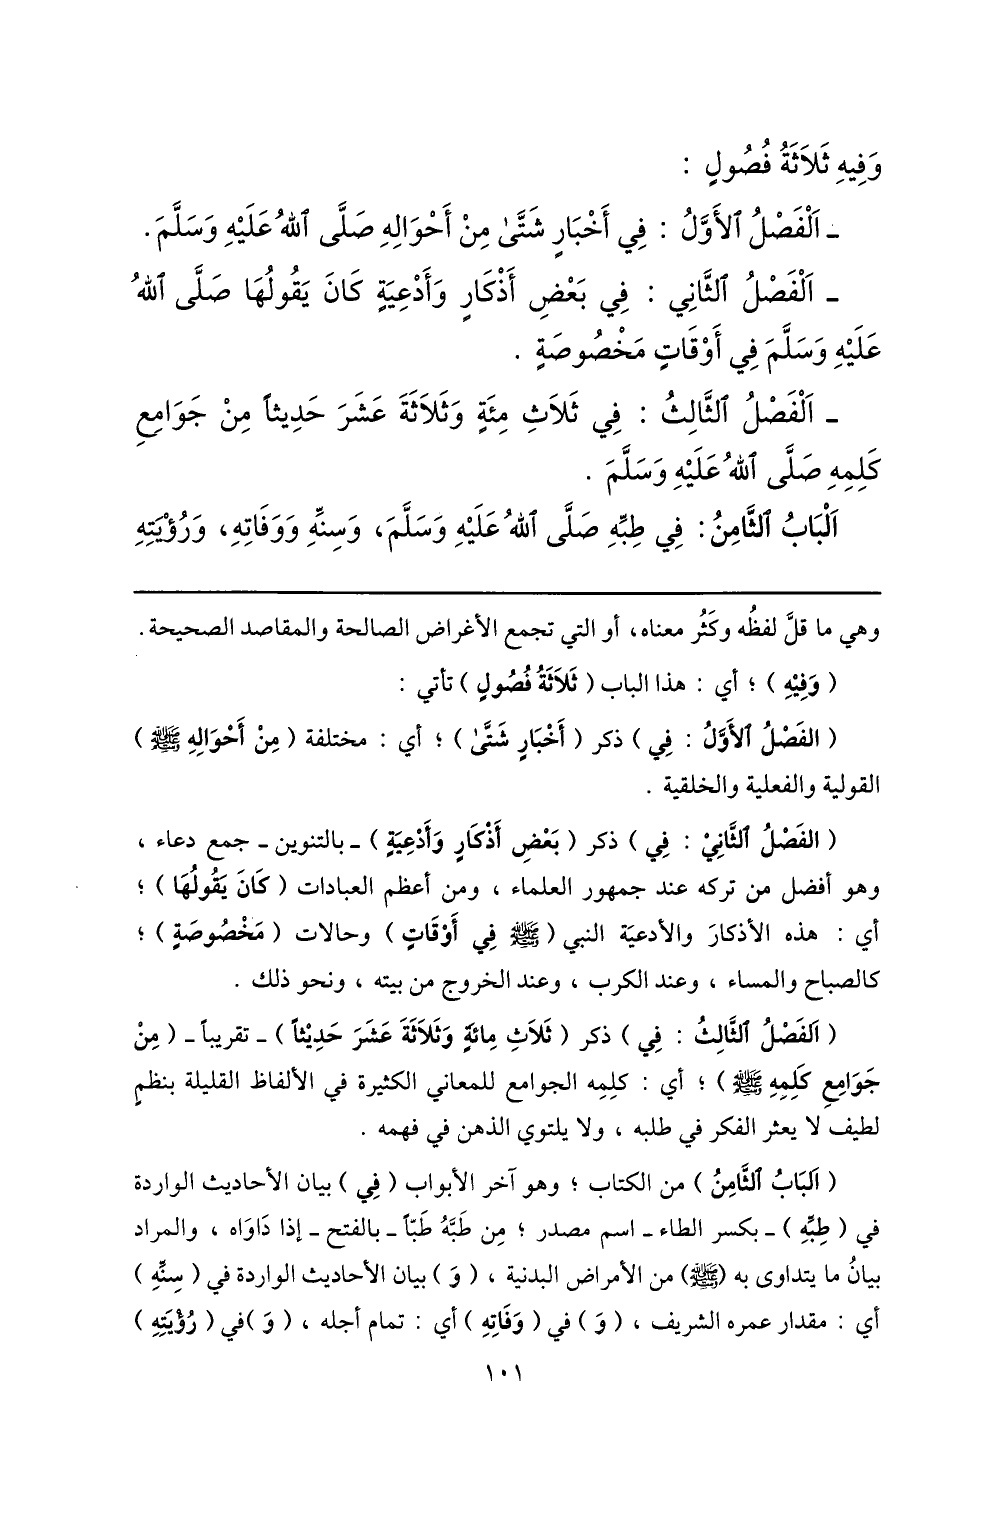 وَفِيهِ ثَلَاثَةُ فُصُولٍ :
ـ اَلْفَصْلُ ٱلأَوَّلُ : فِي أَخْبَارٍ شَتَّىٰ مِنْ أَحْوَالِهِ صَلَّى ٱللهُ عَلَيْهِ وَسَلَّمَ .
ـ اَلْفَصْلُ ٱلثَّانِي : فِي بَعْضِ أَذْكَارٍ وَأَدْعِيَةٍ كَانَ يَقُولُهَا صَلَّى ٱللهُ
عَلَيْهِ وَسَلَّمَ فِي أَوْقَاتٍ مَخْصُوصَةٍ .
ـ اَلْفَصْلُ ٱلثَّالِثُ : فِي ثَلَاثِ مِئَةٍ وَثَلَاثَةَ عَشَرَ حَدِيثاً مِنْ جَوَامِعِ
كَلِمِهِ صَلَّى ٱللهُ عَلَيْهِ وَسَلَّمَ .
اَلْبَابُ ٱلثَّامِنُ : فِي طِبِّهِ صَلَّى ٱللهُ عَلَيْهِ وَسَلَّمَ، وَسِنِّهِ وَوَفَاتِهِ، وَرُؤْيَتِهِ
وهي ما قلَّ لفظُه وكَثُر معناه، أو التي تجمع الأغراض الصالحة والمقاصد الصحيحة.
( وَفِيْهِ ) ؛ أي : هذا الباب ( ثَلَاثَةُ فُصُولٍ ) تأتي :
( الفَصْلُ ٱلأَوَّلُ : فِي ) ذكر ( أَخْبَارٍ شَتَّىٰ ) ؛ أي : مختلفة ( مِنْ أَحْوَالِهِ ﷺ )
القولية والفعلية والخلقية .
( الفَصْلُ ٱلثَّانِيْ : فِي ) ذكر ( بَعْضِ أَذْكَارٍ وَأَدْعِيَةٍ ) ـ بالتنوين ـ جمع دعاء ،
وهو أفضل من تركه عند جمهور العلماء ، ومن أعظم العبادات ( كَانَ يَقُولُهَا ) ؛
أي : هذه الأذكارَ والأدعيَة النبي ( ﷺ فِي أَوْقَاتٍ ) وحالات ( مَخْصُوصَةٍ ) ؛
كالصباح والمساء ، وعند الكرب ، وعند الخروج من بيته ، ونحو ذلك .
( اَلفَصْلُ ٱلثَّالِثُ : فِي ) ذكر ( ثَلَاثِ مِائَةٍ وَثَلَاثَةَ عَشَرَ حَدِيْثاً ) ـ تقريباً ـ ( مِنْ
جَوَامِعِ كَلِمِهِ ﷺ ) ؛ أي : كلِمِه الجوامع للمعاني الكثيرة في الألفاظ القليلة بنظمٍ
لطيف لا يعثر الفكر في طلبه ، ولا يلتوي الذهن في فهمه .
( اَلبَابُ ٱلثَّامِنُ ) من الكتاب ؛ وهو آخر الأبواب ( فِي ) بيان الأحاديث الواردة
في ( طِبِّهِ ) ـ بكسر الطاء ـ اسم مصدر ؛ مِن طَبَّهُ طَبّاً ـ بالفتح ـ إذا دَاوَاه ، والمراد
بيانُ ما يتداوى به (ﷺ) من الأمراض البدنية ، ( وَ ) بيان الأحاديث الواردة في ( سِنِّهِ )
أي : مقدار عمره الشريف ، ( وَ ) في ( وَفَاتِهِ ) أي : تمام أجله ، ( وَ )في ( رُؤْيَتِهِ )
١٠١